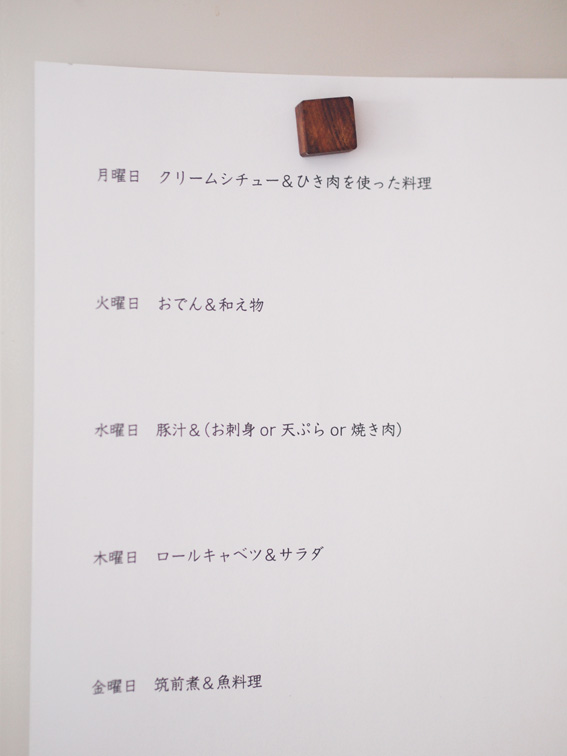 月曜日 クリームシチュー＆ひき肉を使った料理
火曜日 おでん＆和え物
水曜日 豚汁＆(お刺身 or 天ぷら or 焼き肉)
木曜日 ロールキャベツ＆サラダ
金曜日 筑前煮＆魚料理